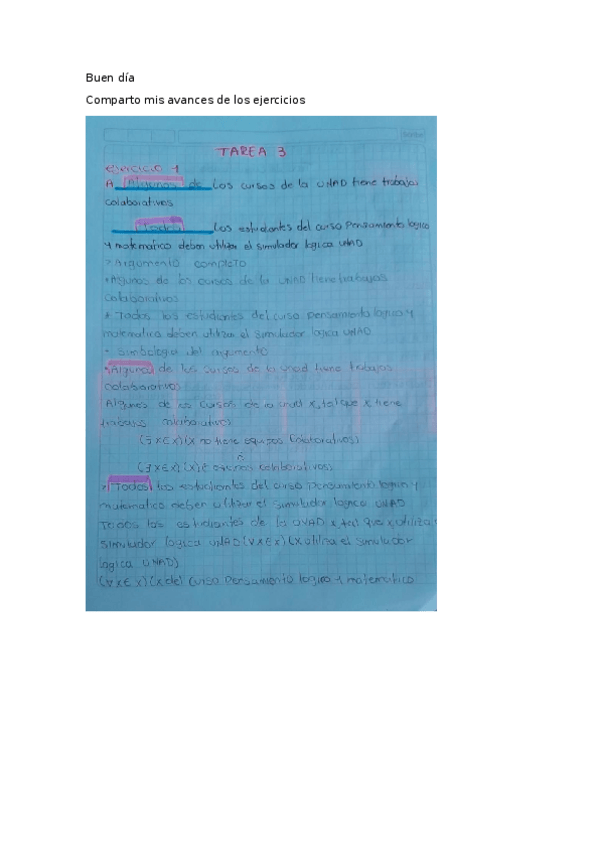 Buen día
Comparto mis avances de los ejercicios
TAREA 3
ejercicio 1
A Algunos de los cursos de la UNAD tiene trabajos
colaborativos
Todos los estudiantes del curso Pensamiento logico
y matematico deben utilizar el simulador logica UNAD
Argumento completo
Algunos de los cursos de la UNAD tiene trabajos
colaborativos
* Todos los estudiantes del curso pensamiento logico y
matematico deben utilizar el simulador logica UNAD
simbologia del argumento
Algunos de los cursos de la unad tiene trabajos
colaborativos
Algunos de los cursos de la unad x, tal que x tiene
trabajos colaborativos
(∃ x ∈ x) (x no tiene equipos colaborativos)
(∃ x ∈ x) (x colaborativos)
Todos los estudiantes del curso pensamiento logico y
matematico deben utilizar el simulador logico UNAD
Todos los estudiantes de la UNAD x tal que x utiliza
simulador logica UNAD (∀ x ∈ x) (x utiliza el simulador
logica UNAD)
(∀ x ∈ x) (x del curso Pensamiento logico y matematico